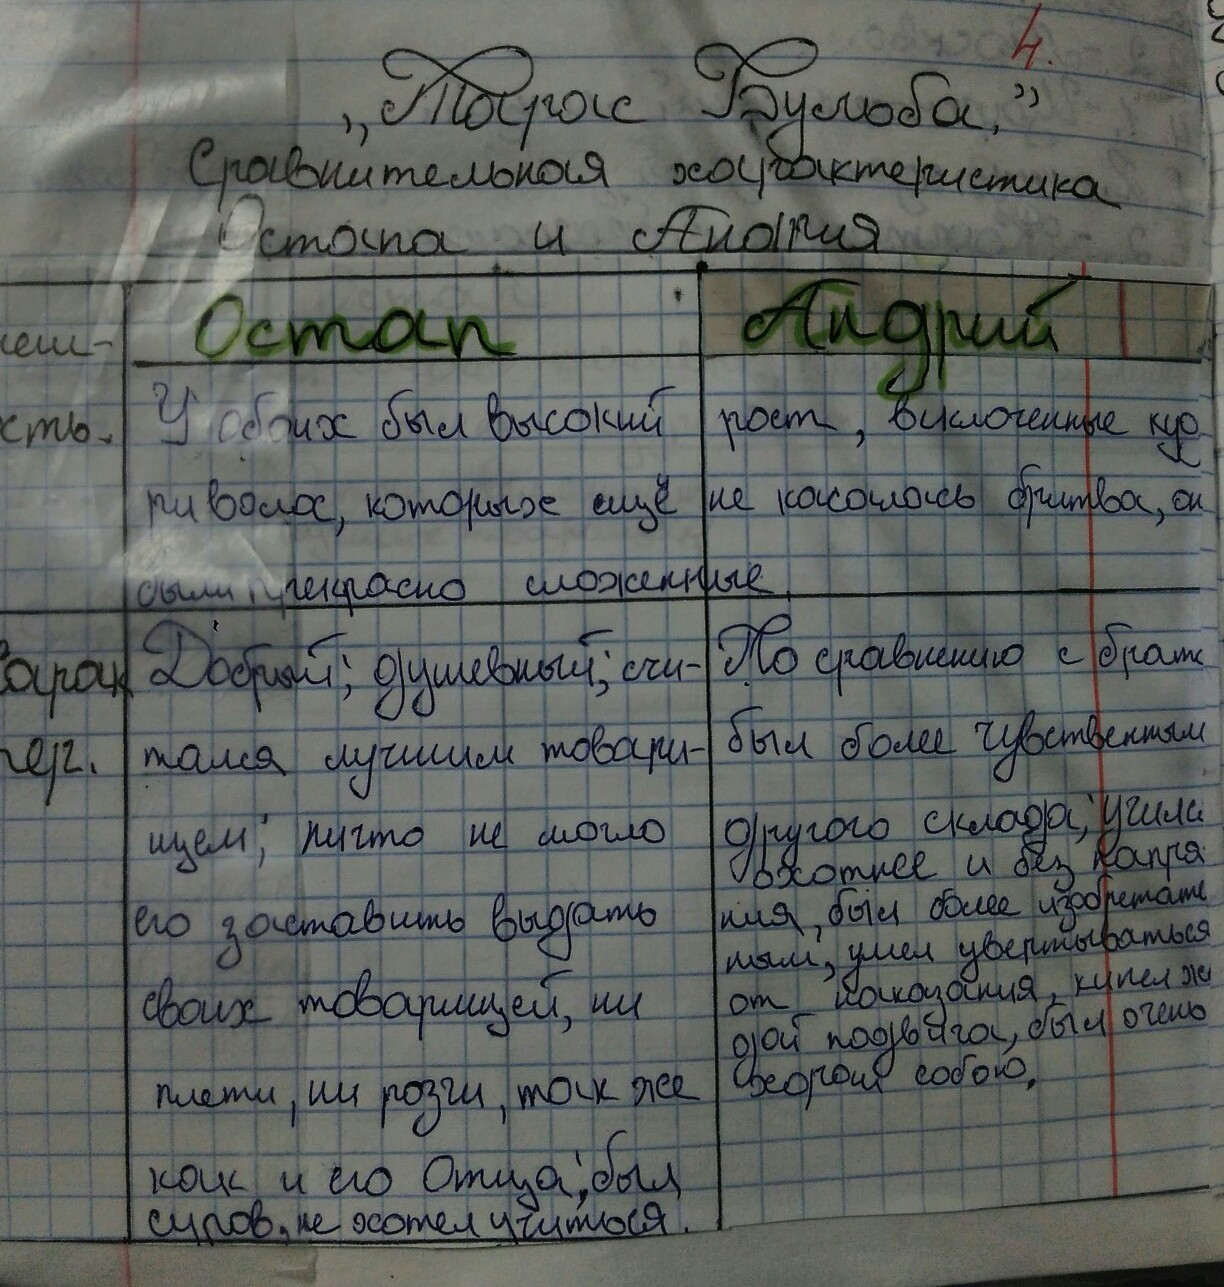 4.
„Тарас Бульба."
Сравнительная характеристика
Остапа и Андрия
неш- Остап Андрий
сть. У обоих был высокий рост, вклоченные куд
ри волос, которых ещё не касалась бритва, он
были прекрасно сложенные
Харак
тер.
Добрый; душевный; счи-
тался лучшим товари-
щем; ничто не могло
его заставить выдать
своих товарищей, ни
плети, ни розги, так же
как и его Отца; был
суров, не хотел учиться.
По сравнению с братом
был более чувственным
другого склада; училс
охотнее и без напря
ния, был более изобретате
ным; умел увертываться
от наказания, кипел жа
дой подвига, был очень
хорош собою.